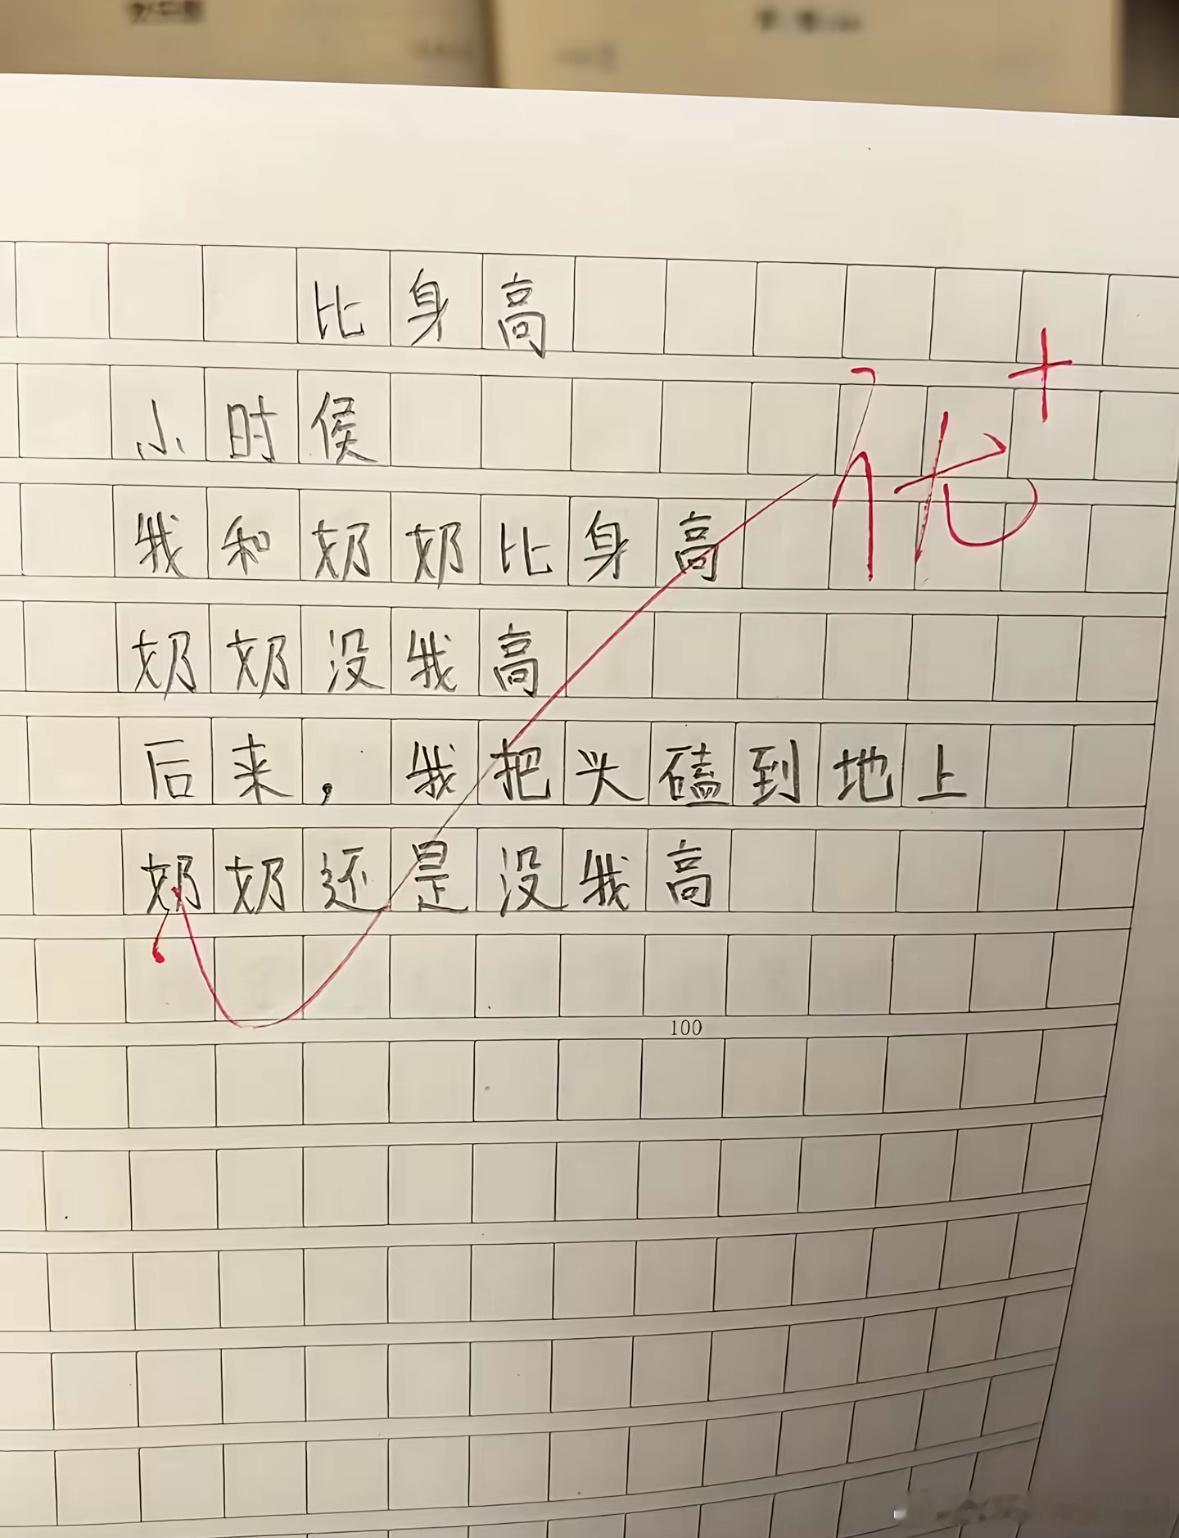 比身高
小时侯
我和奶奶比身高
奶奶没我高
后来，我把头磕到地上
奶奶还是没我高
优+
100